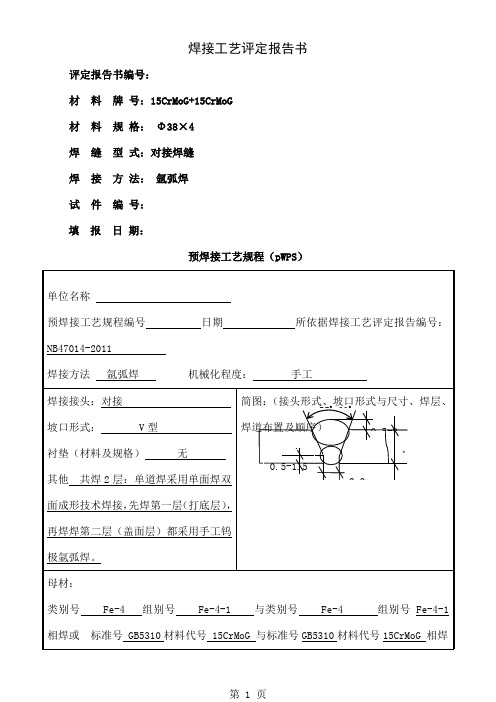 焊接工艺评定报告书
评定报告书编号：
材 料 牌 号：15CrMoG+15CrMoG
材 料 规 格： Φ38×4
焊 缝 型 式：对接焊缝
焊 接 方 法： 氩弧焊
试 件 编 号：
填 报 日 期：
预焊接工艺规程（pWPS）
单位名称
预焊接工艺规程编号 日期 所依据焊接工艺评定报告编号：
NB47014-2011
焊接方法 氩弧焊 机械化程度： 手工
焊接接头：对接
坡口形式： V型
衬垫（材料及规格） 无
其他 共焊2层：单道焊采用单面焊双
面成形技术焊接，先焊第一层（打底层），
再焊焊第二层（盖面层）都采用手工钨
极氩弧焊。
简图：（接头形式、坡口形式与尺寸、焊层、
焊道布置及顺序）
0.5-1.5
母材：
类别号 Fe-4 组别号 Fe-4-1 与类别号 Fe-4 组别号 Fe-4-1
相焊或 标准号 GB5310 材料代号 15CrMoG 与标准号 GB5310 材料代号 15CrMoG 相焊
第 1 页